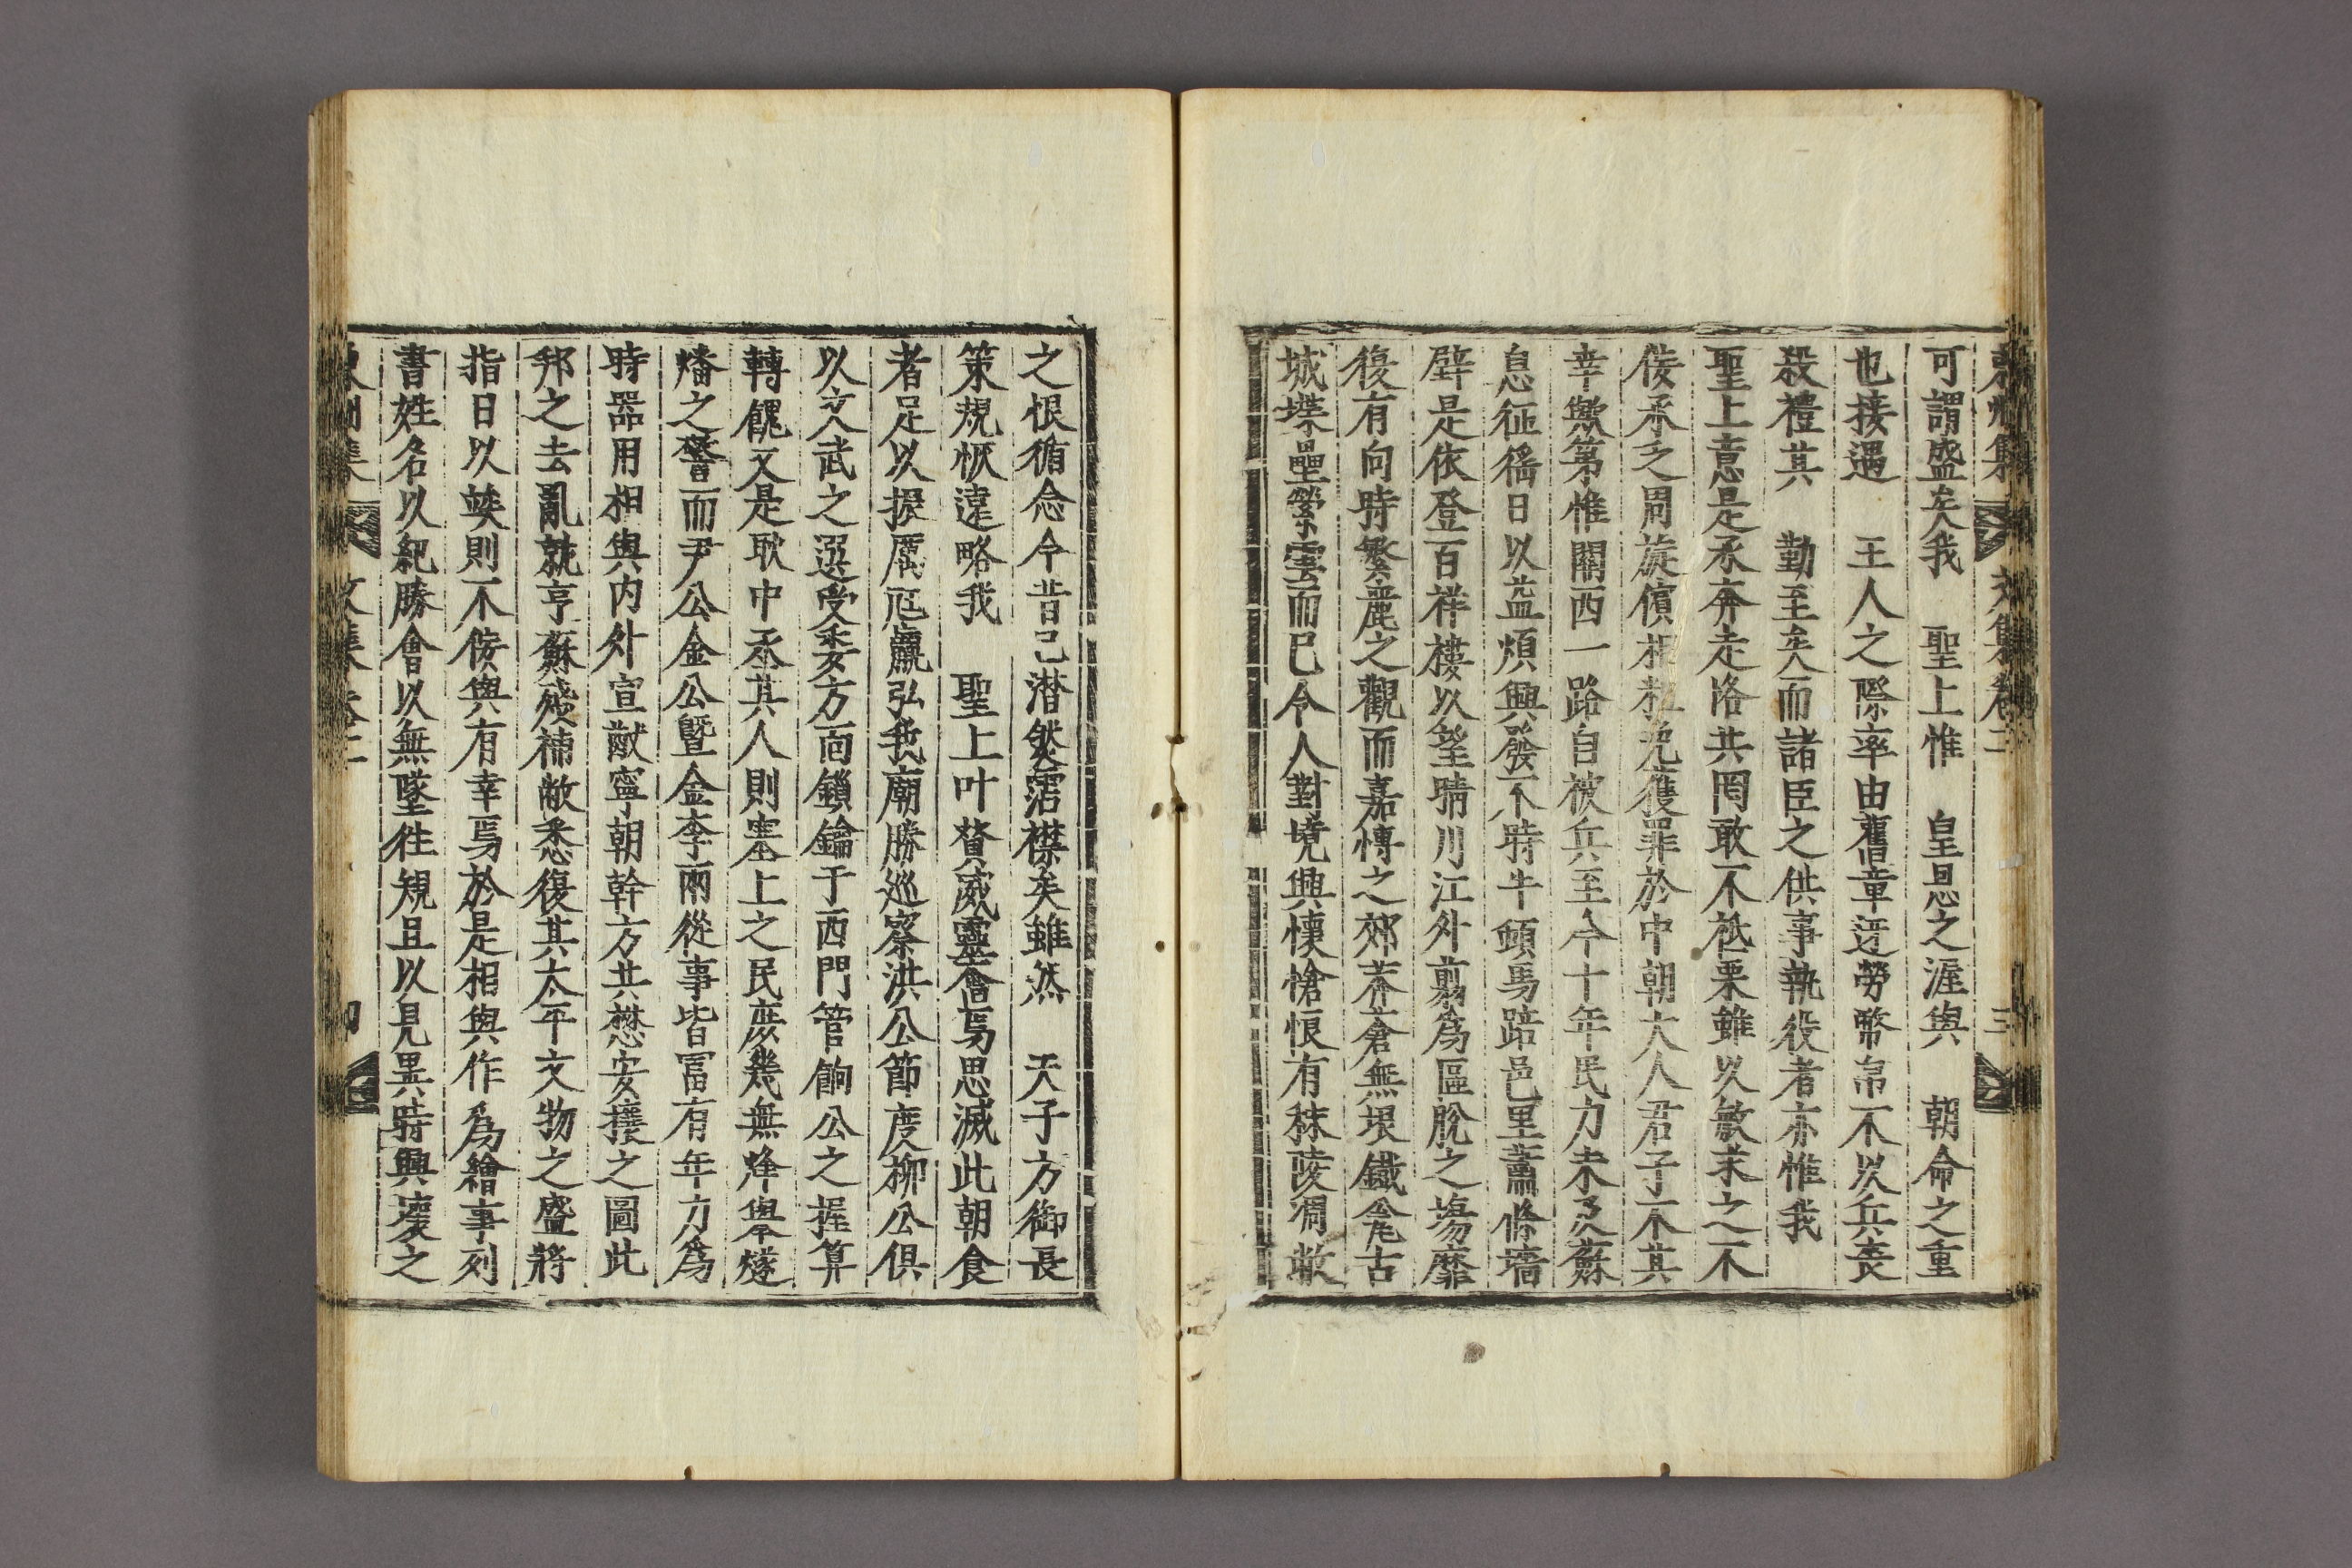 集 文集卷二 三
可謂盛矣我 聖上惟 皇恩之渥與 朝命之重
也接遇 王人之際率由舊章迓勞幣帛不以兵喪
殺禮其 勤至矣而諸臣之供事執役者亦惟我
聖上意是承奔走咯共罔敢不祗栗雖以敏求之不
佞承乏周旋儐相
獲罪於中朝大人君子不其
幸歟第惟關西一路自被兵至今十年民力未及蘇
息征徭日以益煩興發不時牛頭馬蹄邑里蕭條墻
壁是依登百祥樓以望晴川江外翦爲區脫之場靡
復有向時繁麗之觀而嘉慱之郊莽蒼無垠鐵瓮古
城堞壘縈雲而已令人對境興懷愴悢有秣陵凋敝
之恨循念今昔已潸然霑襟矣雖然 天子方御長
策規恢遠略我 聖上叶贊威靈會焉思滅此朝食
者足以振厲尫羸弘我廟勝巡察洪公節度柳公俱
以文武之選受委方面鎖鑰于西門管餉公之握算
轉餽又是耿中丞其人則塞上之民庶幾無烽擧燧
燔之警而尹公金公曁金李兩從事皆富有年方爲
時器用相與內外宣猷寧朝幹方共懋安攘之圖此
邦之去亂就亨蘇殘補敝悉復其太平文物之盛將
指日以竢則不佞與有幸焉於是相與作爲繪事列
書姓名以紀勝會以無墜徃規且以見異時興壞之
集 文集卷二 四